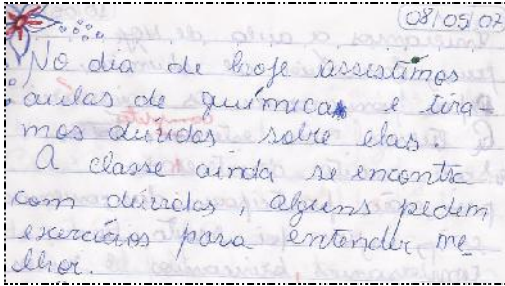 08/05/07
No dia de hoje assistimos
aulas de química e tira
mos duvidas sobre elas.
A classe ainda se encontra
com duvidas, alguns pedem
exercícios para entender me
lhor.